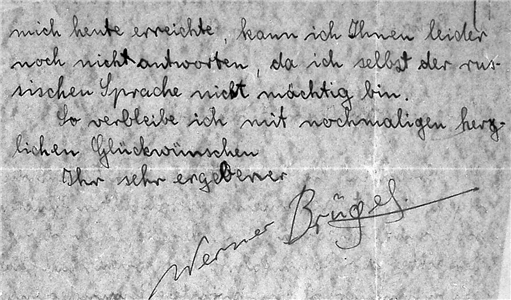 mich heute erreichte, kann ich Ihnen leider
noch nicht antworten, da ich selbst der rus-
sischen Sprache nicht mächtig bin.
So verbleibe ich mit nochmaligen herz-
lichen Glückwünschen
Ihr sehr ergebener
Werner Brügel.